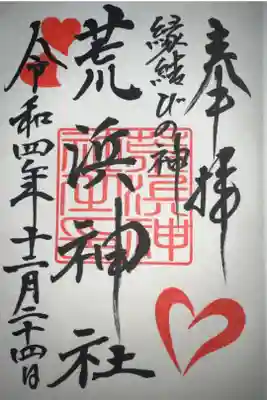 奉拝
縁結びの神
荒浜神社
令和四年十二月二十四日